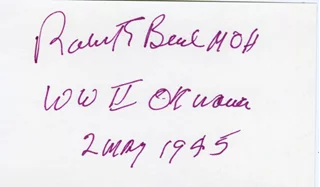 Robert E Bush MOH
WW II Okinawa
2 May 1945